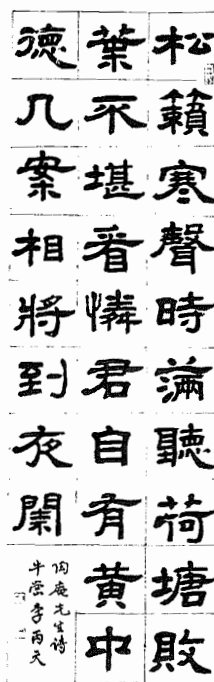 松籟寒聲時滿聽荷塘敗
葉不堪看憐君自有黃中
德几案相將到夜闌
陶庵先生诗
李丙天